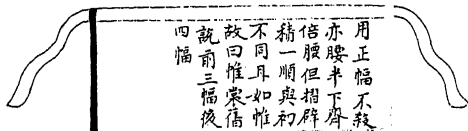 用正幅不殺
亦腰半下齊
倍腰但摺辟
積一順與初
不同耳如帷
故曰帷裳舊
說前三幅後
四幅